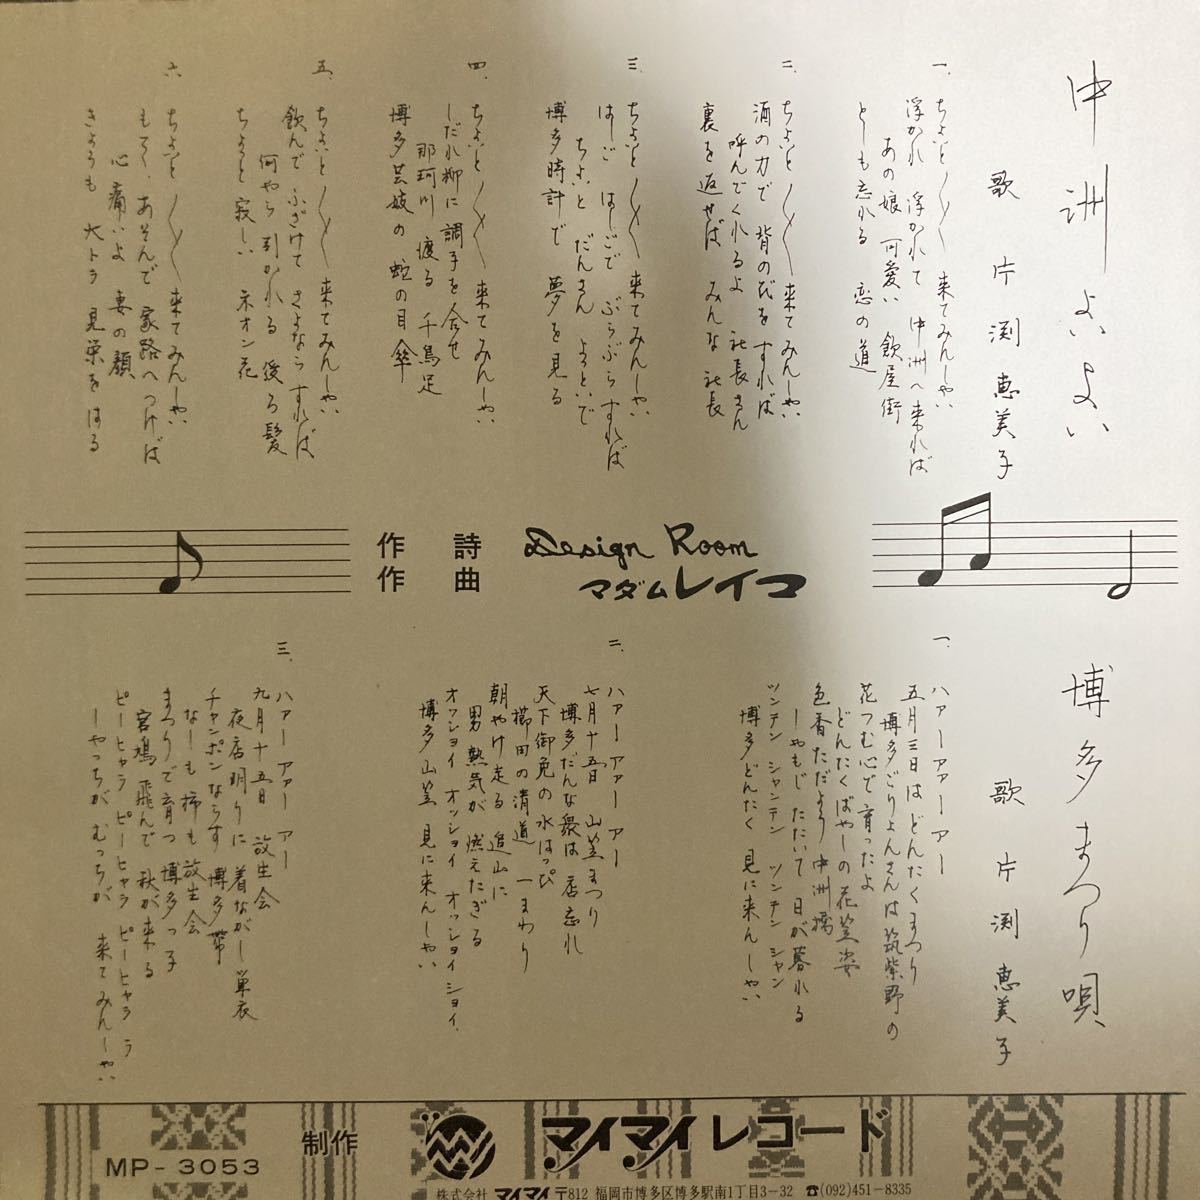 中洲よいよい
歌 片渕恵美子
一、
ちょいと〳〵 来てみんしゃい
浮かれ 浮かれて 中洲へ来れば
あの娘 可愛い 飲屋街
としも忘れる 恋の道
二、
ちょいと〳〵 来てみんしゃい
酒の力で 背のびを すれば
呼んでくれるよ 社長さん
裏を返せば みんな社長
三、
ちょいと〳〵 来てみんしゃい
はしご はしごで ぶらぶらすれば
ちょいと だんさん よっといで
博多時計で 夢を見る
四、
ちょいと〳〵 来てみんしゃい
しだれ柳に 調子を合せ
那珂川 渡る 千鳥足
博多芸妓の 蛇の目傘
五、
ちょいと〳〵 来てみんしゃい
飲んで ふざけて さよなら すれば
何やら 引かれる 後ろ髪
ちょっと 寂しい ネオン花
六、
ちょいと〳〵 来てみんしゃい
もてて、あそんで 家路へつけば
心痛いよ 妻の顔
きょうも 大トラ 見栄を はる
作詩
作曲
Design Room
マダムレイコ
博多まつり唄
歌 片渕恵美子
一、
ハァー アァー アー
五月三日は どんたくまつり
博多ごりょんさんは 筑紫野の
花つむ心で 育ったよ
どんたくばやしの 花笠姿
色香ただよう 中洲橋
しゃもじ たたいて 日が暮れる
ツンテン シャンテン ツンテン シャン
博多どんたく 見に来んしゃい
二、
ハァー アァー アー
七月十五日 山笠まつり
博多だんな衆は 店忘れ
天下御免の 水はっぴ
櫛田の清道 一まわり
朝やけ走る 追山に
男 熱気が 燃えたぎる
オッショイ オッショイ オッショイショイ、
博多山笠 見に来んしゃい
三、
ハァー アァー アー
九月十五日 放生会
夜店明りに 着ながし単衣
チャンポンならす 博多帯
なしも 柿も 放生会
まつりで育つ 博多っ子
宮鳩 飛んで 秋が来る
ピーヒャララ ピーヒャララ ピーヒャララ
しゃっちが むっちが 来てみんしゃい
MP-3053
制作
マイマイレコード
株式会社 マイマイ 〒812 福岡市博多区博多駅南1丁目3-32 ☎(092)451-8335